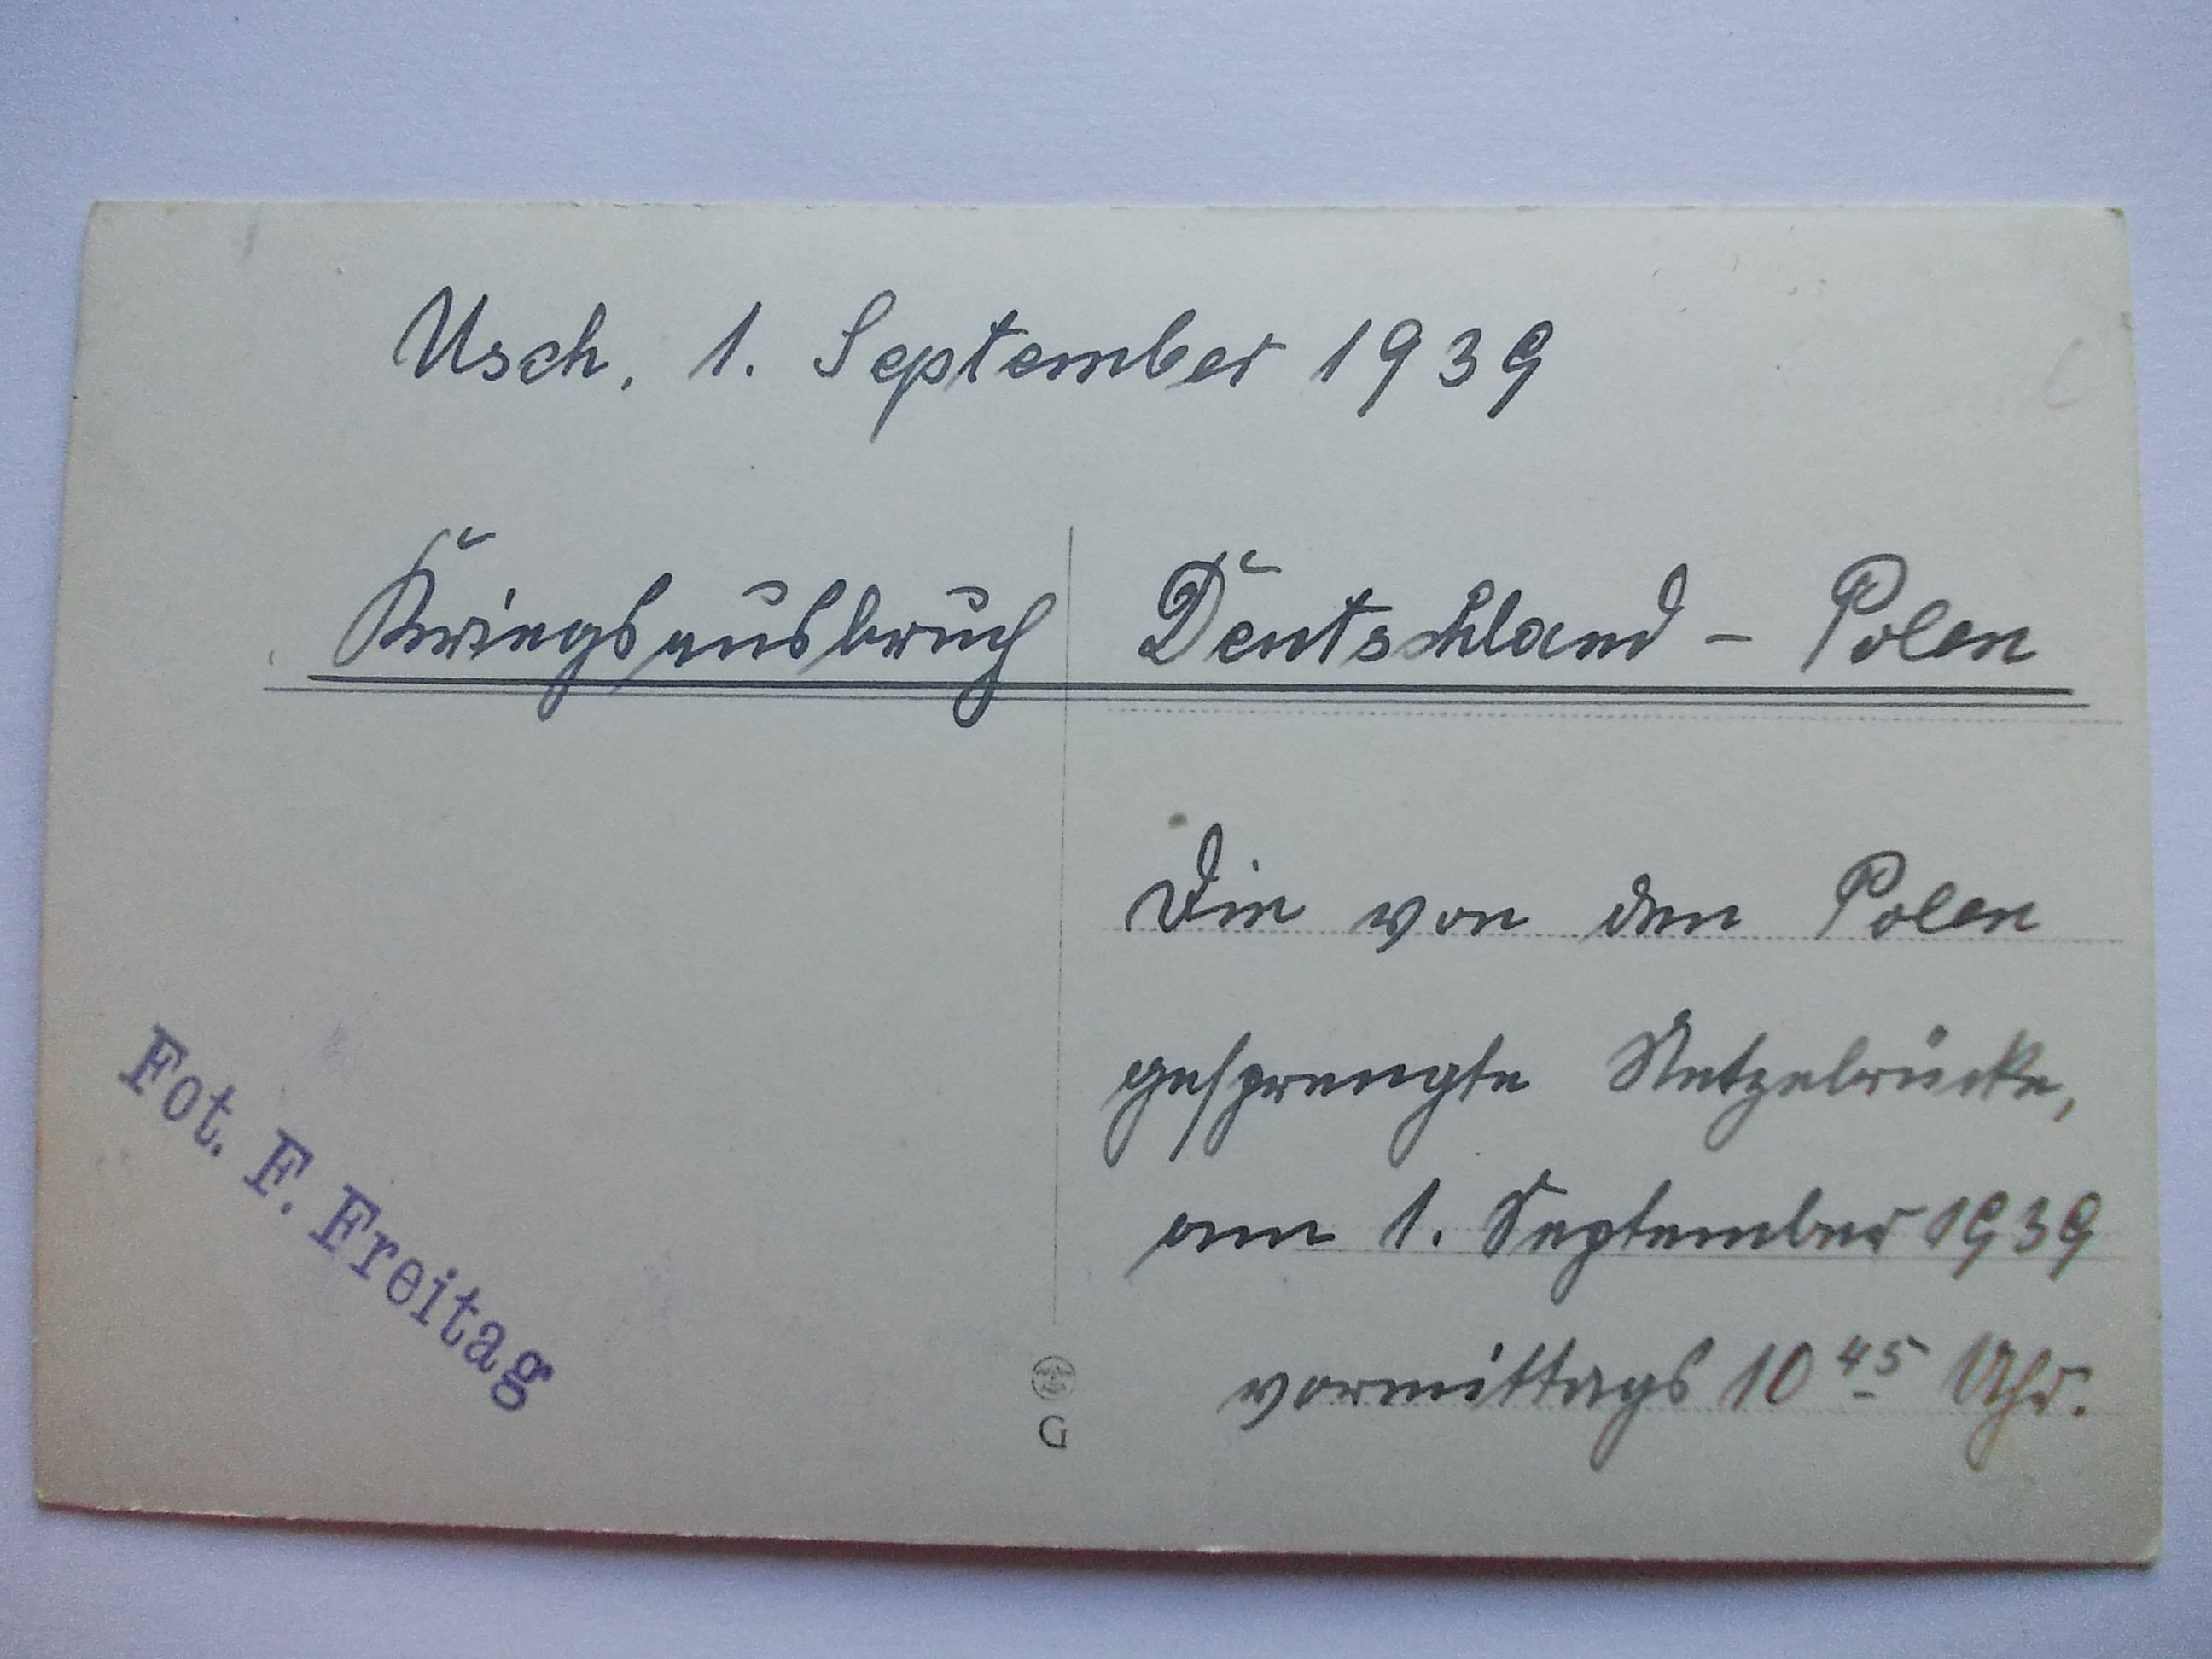 Usch, 1. September 1939
Kriegsausbruch Deutschland - Polen
Die von den Polen
gesprengte Netzebrücke,
am 1. September 1939
vormittags 10 45 Uhr.
Fot. F. Freitag
G